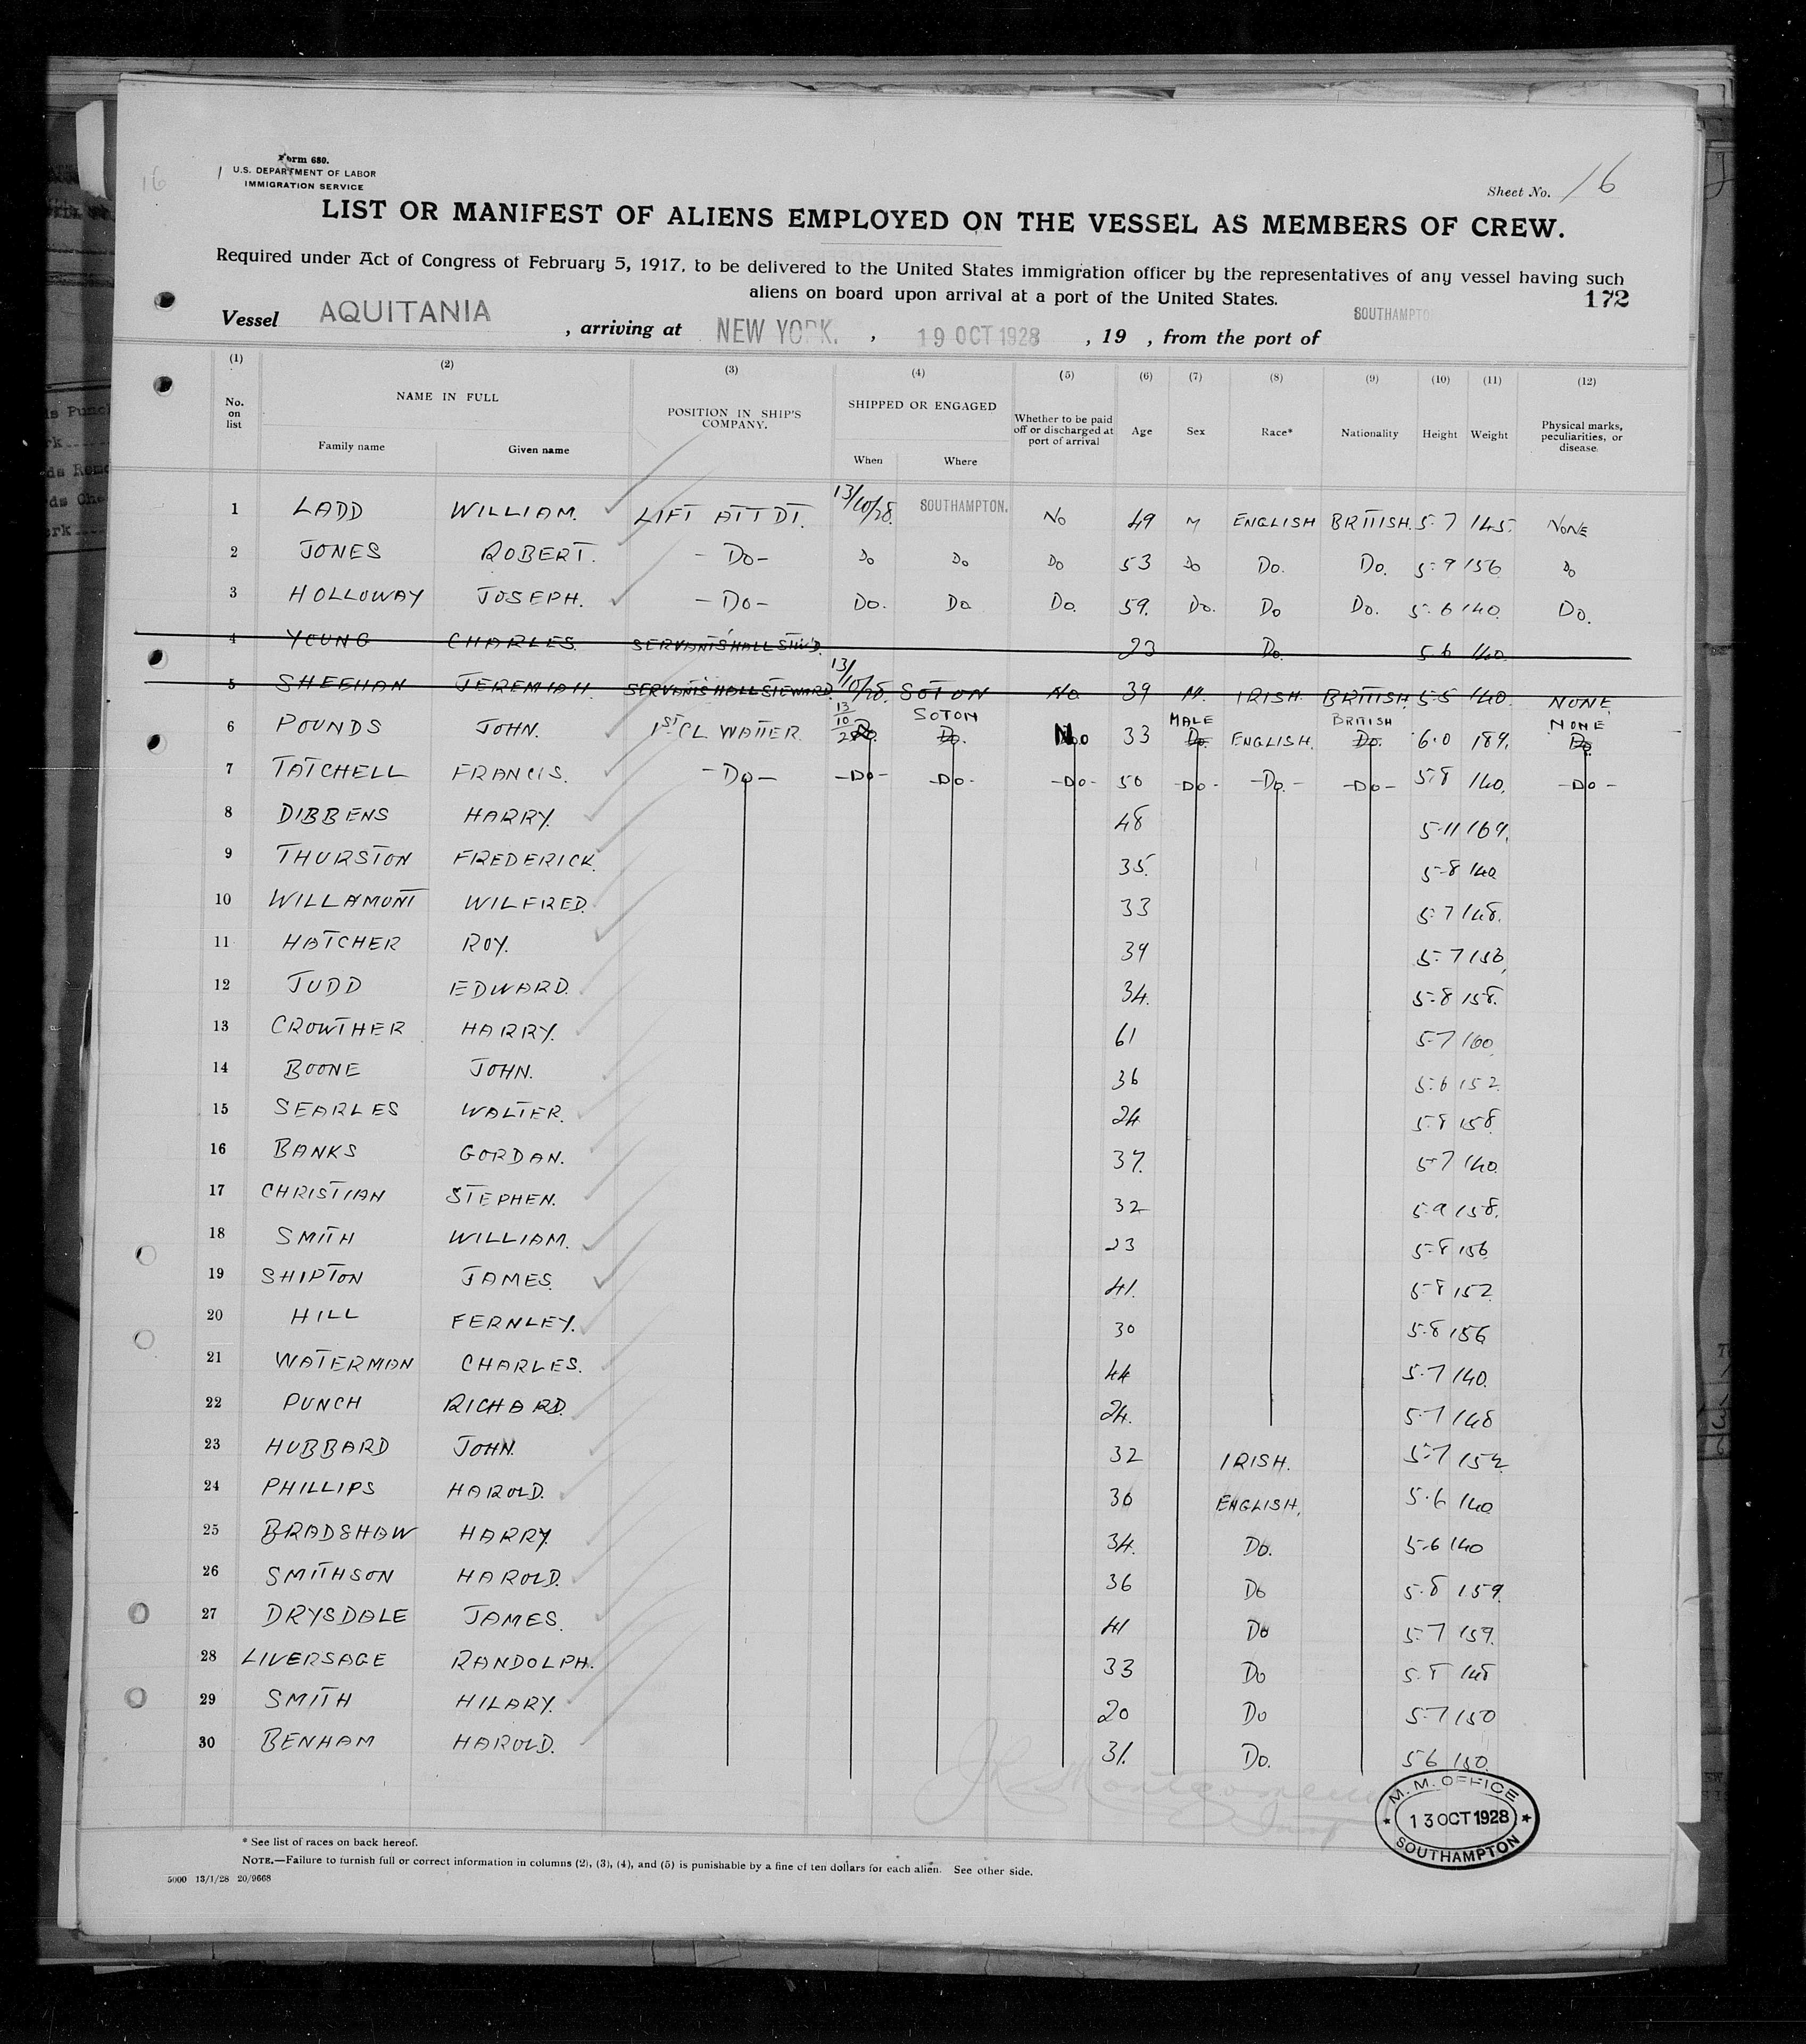 16
Form 680.
U.S. DEPARTMENT OF LABOR
IMMIGRATION SERVICE
Sheet No. 16
LIST OR MANIFEST OF ALIENS EMPLOYED ON THE VESSEL AS MEMBERS OF CREW.
Required under Act of Congress of February 5, 1917, to be delivered to the United States immigration officer by the representatives of any vessel having such
aliens on board upon arrival at a port of the United States.
172
Vessel AQUITANIA, arriving at NEW YORK., 19 OCT 1928, 19 , from the port of SOUTHAMPTO
(1) (2) (3) (4) (5) (6) (7) (8) (9) (10) (11) (12)
No. on list NAME IN FULL Family name Given name POSITION IN SHIP'S COMPANY. SHIPPED OR ENGAGED When Where Whether to be paid off or discharged at port of arrival Age Sex Race* Nationality Height Weight Physical marks, peculiarities, or disease.
1 LADD WILLIAM. LIFT ATTDT. 13/10/28. SOUTHAMPTON. No 49 M ENGLISH BRITISH. 5-7 145. NONE
2 JONES ROBERT. - Do - Do Do Do 53 Do Do. Do. 5-9 156 Do
3 HOLLOWAY JOSEPH. - Do - Do. Do Do. 59. Do. Do Do. 5-6 140. Do.
4 YOUNG CHARLES. SERVANTS HALL STWD. 23 Do. 5.6 140.
5 SHEEHAN JEREMIAH. SERVANTS HALL STEWARD. 13/10/28. SOTON No 39 M. IRISH. BRITISH. 5-5 140. NONE
6 POUNDS JOHN. 1ST CL WAITER. 13/10/28 Do. SOTON Do. No 33 MALE Do. ENGLISH. BRITISH Do. 6.0 189. NONE Do.
7 TATCHELL FRANCIS. - Do - - Do - - Do - - Do - 50 - Do - - Do. - - Do - 5-8 140. - Do -
8 DIBBENS HARRY. 48 5.11 169.
9 THURSTON FREDERICK. 35. 5-8 140
10 WILLAMONT WILFRED. 33 5-7 148.
11 HATCHER ROY. 39 5-7 153.
12 JUDD EDWARD. 34. 5-8 158.
13 CROWTHER HARRY. 61 5-7 160.
14 BOONE JOHN. 36 5.6 152
15 SEARLES WALTER. 24 5.8 158.
16 BANKS GORDAN. 37. 5-7 140.
17 CHRISTIAN STEPHEN. 32 5.9 158.
18 SMITH WILLIAM. 23 5-8 156
19 SHIPTON JAMES. 41. 5-8 152.
20 HILL FERNLEY. 30 5.8 156
21 WATERMAN CHARLES. 44 5.7 140.
22 PUNCH RICHARD. 24. 5.7 148
23 HUBBARD JOHN. 32 IRISH. 5-7 152.
24 PHILLIPS HAROLD. 30 ENGLISH. 5.6 140
25 BRADSHAW HARRY. 34. Do. 5-6 140
26 SMITHSON HAROLD. 36 Do 5.8 159.
27 DRYSDALE JAMES. 41 Do 5-7 159.
28 LIVERSAGE RANDOLPH. 33 Do 5.8 148
29 SMITH HILARY. 20 Do 5-7 150
30 BENHAM HAROLD. 31. Do. 5.6 150.
Montgomery
M. M. OFFICE
13 OCT 1928
SOUTHAMPTON
* See list of races on back hereof.
NOTE.—Failure to furnish full or correct information in columns (2), (3), (4), and (5) is punishable by a fine of ten dollars for each alien. See other side.
5000 13/1/28 20/9668